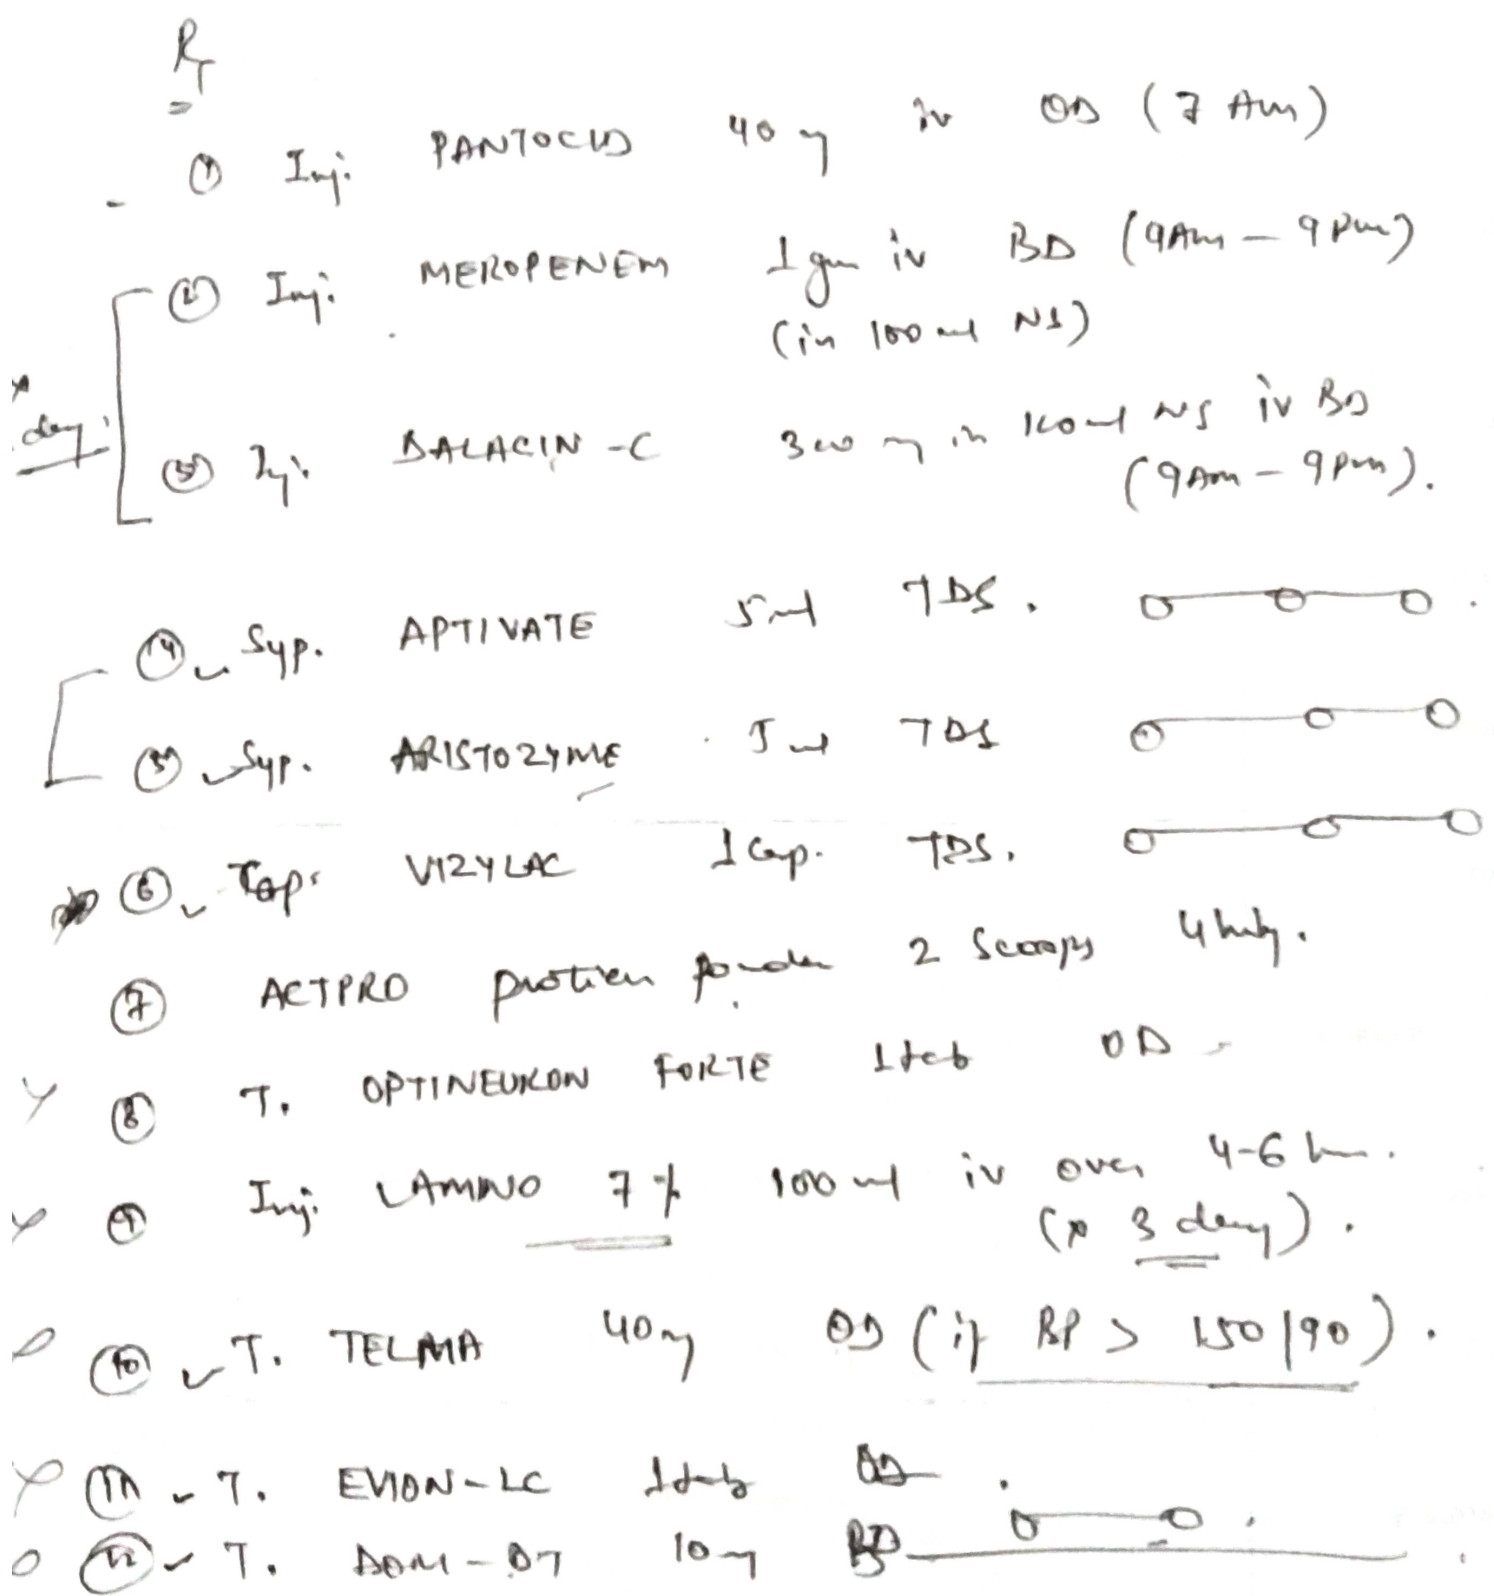 Rx
① Inj. PANTOCID 40 mg iv OD (7 Am)
② Inj. MEROPENEM 1 gm iv BD (9Am – 9pm)
(in 100 ml NS)
day
③ Inj. DALACIN -C 300 mg in 100ml NS iv BD
(9Am – 9pm).
④ Syp. APTIVATE 5ml TDS.
⑤ Syp. ARISTOZYME 5ml TDS
⑥ Cap. VIZYLAC 1 Cap. TDS.
⑦ ACTPRO protien powder 2 Scoops 4 hrly.
⑧ T. OPTINEURON FORTE 1 tab OD
⑨ Inj. LAMINO 7% 100 ml iv over 4-6 hrs.
(x 3 days).
⑩ T. TELMA 40mg OD (if BP > 150/90).
⑪ T. EVION-LC 1 tab OD.
⑫ T. DOM-DT 10mg BD